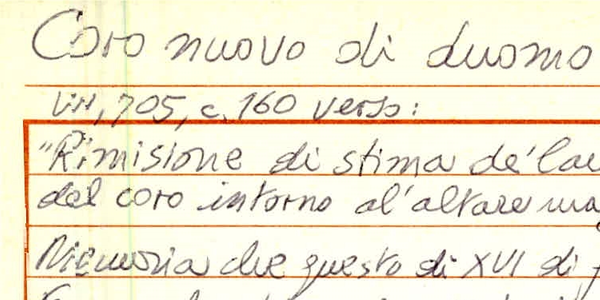 Coro nuovo di duomo
VII, 705, c. 160 verso:
"Rimisione di stima de'
del coro intorno al'altare
Memoria che questo di XVI di